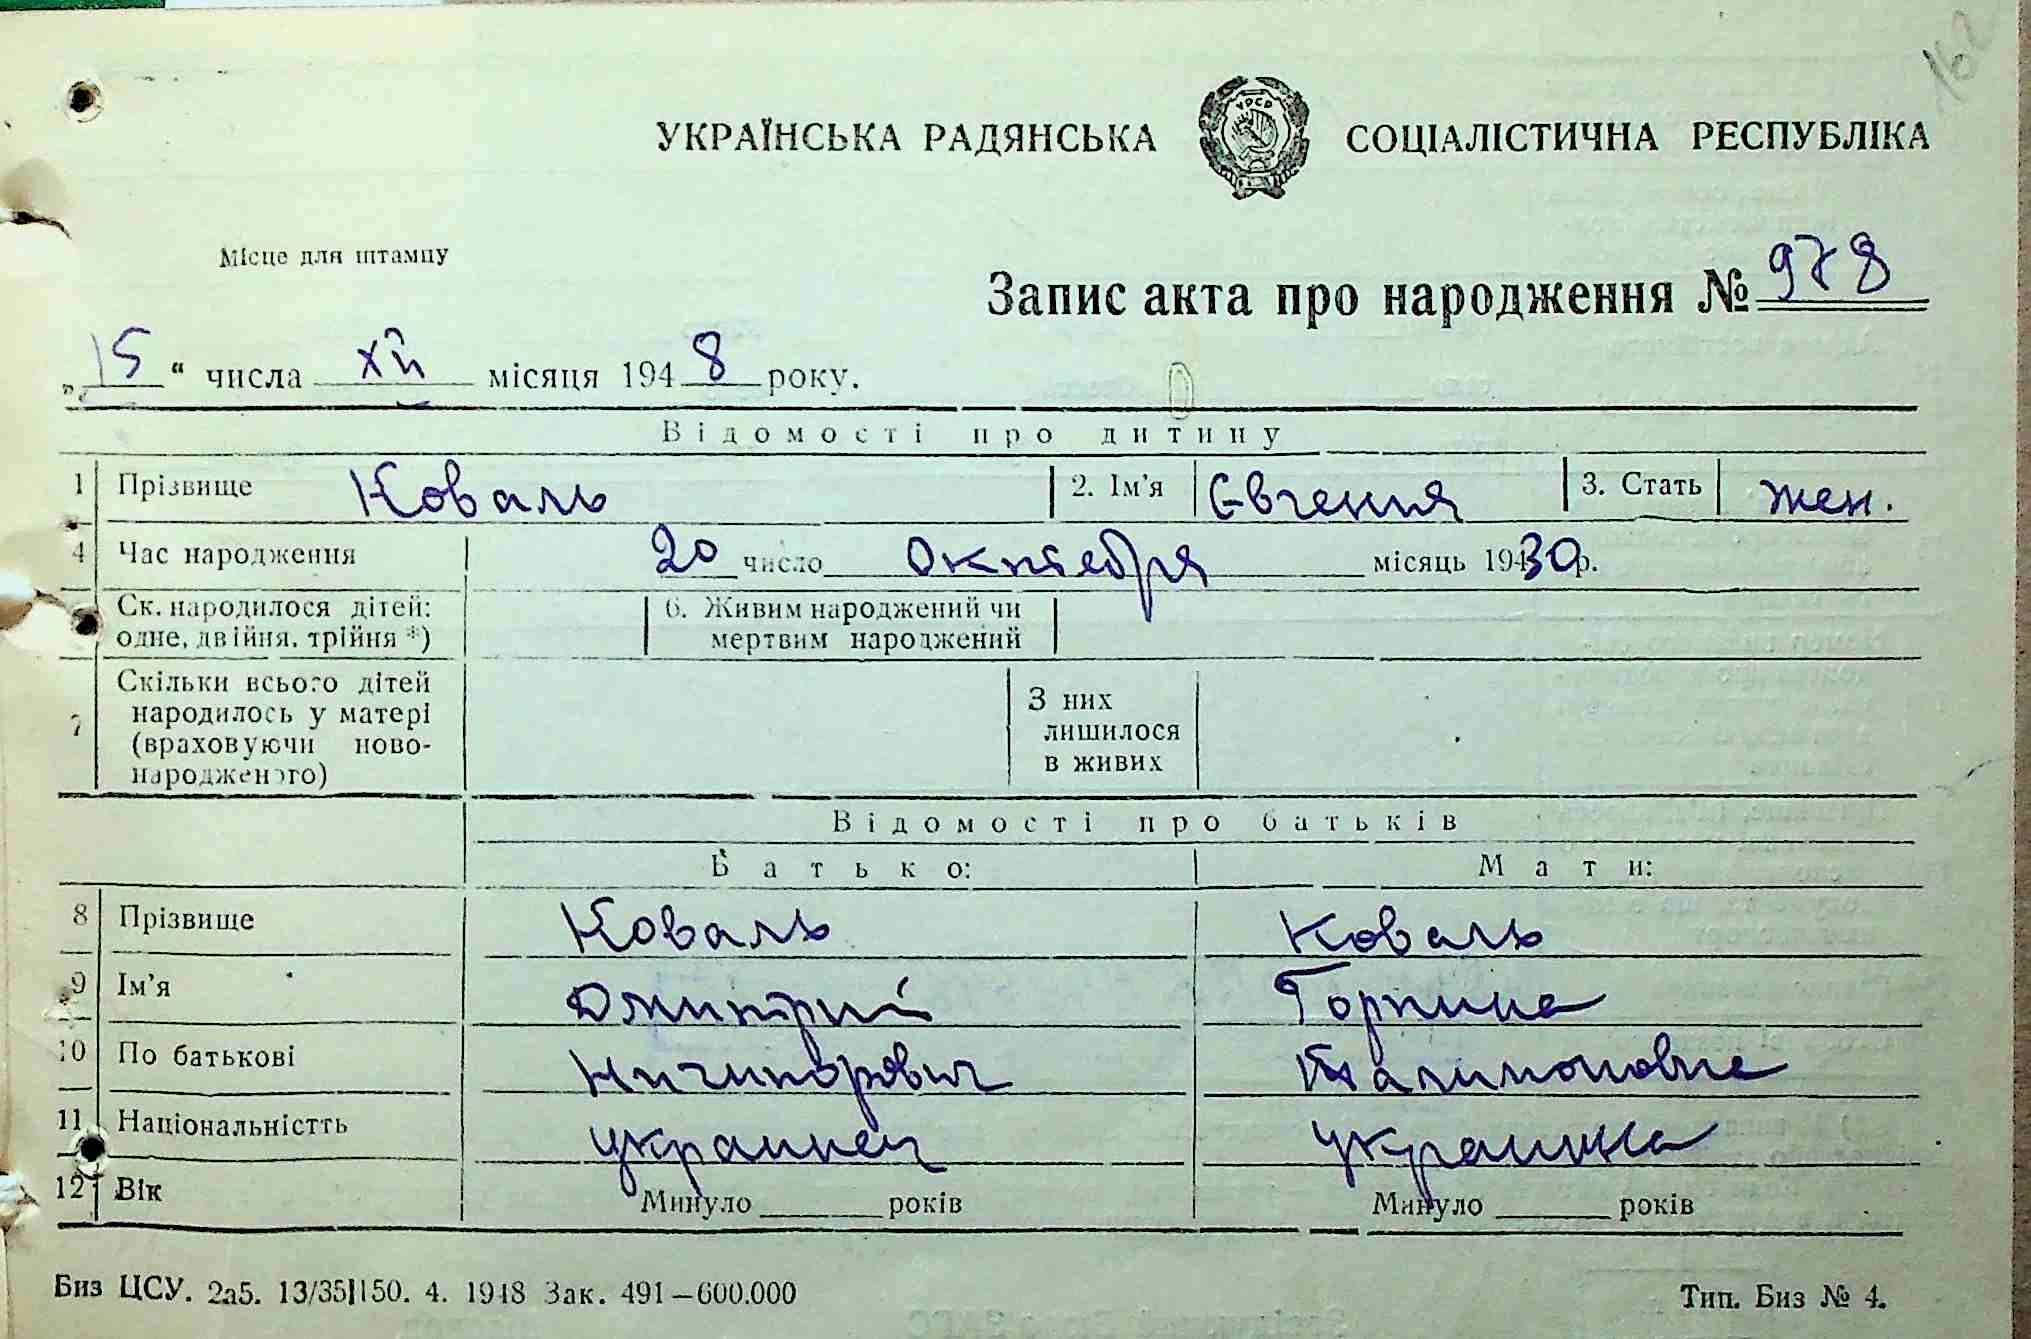 162
УКРАЇНСЬКА РАДЯНСЬКА СОЦІАЛІСТИЧНА РЕСПУБЛІКА
УРСР
Місце для штампу
Запис акта про народження № 978
„15“ числа XII місяця 1948 року.
Відомості про дитину
1 Прізвище Коваль 2. Ім'я Євгения 3. Стать жен.
4 Час народження 20 число Октября місяць 19430р.
Ск. народилося дітей: 6. Живим народжений чи
одне, двійня, трійня *) мертвим народжений
Скільки всього дітей З них
7 народилось у матері лишилося
(враховуючи ново- в живих
народженого)
Відомості про батьків
Батько: Мати:
8 Прізвище Коваль Коваль
9 Ім'я Дмитрий Горпина
10 По батькові Ничипорович Талимоновна
11 Національністть украинец украинка
12 Вік Минуло ____ років Минуло ____ років
Биз ЦСУ. 2а5. 13/35|150. 4. 1948 Зак. 491—600.000 Тип. Биз № 4.